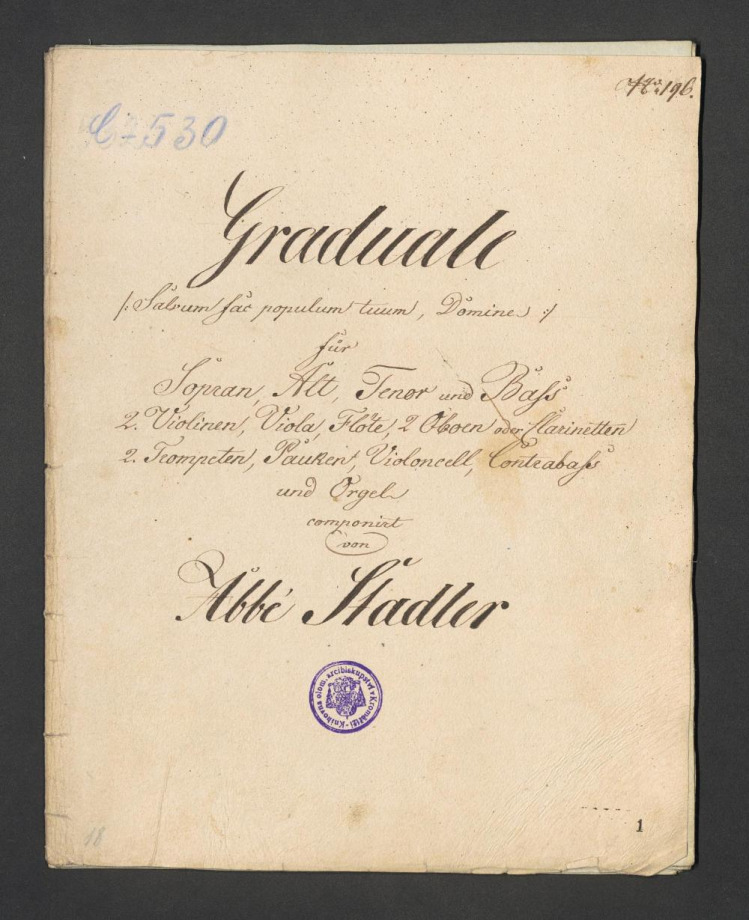 No. 196.
C 530
Graduale
/: Salvum fac populum tuum, Domine :/
für
Sopran, Alt, Tenor und Bass
2. Violinen, Viola, Flöte, 2 Oboen oder Clarinetten
2. Trompeten, Pauken, Violoncell, Contrabass
und Orgel
componirt
von
Abbé Stadler
Knihovna olom. arcibiskupství v Kroměříži
1
18